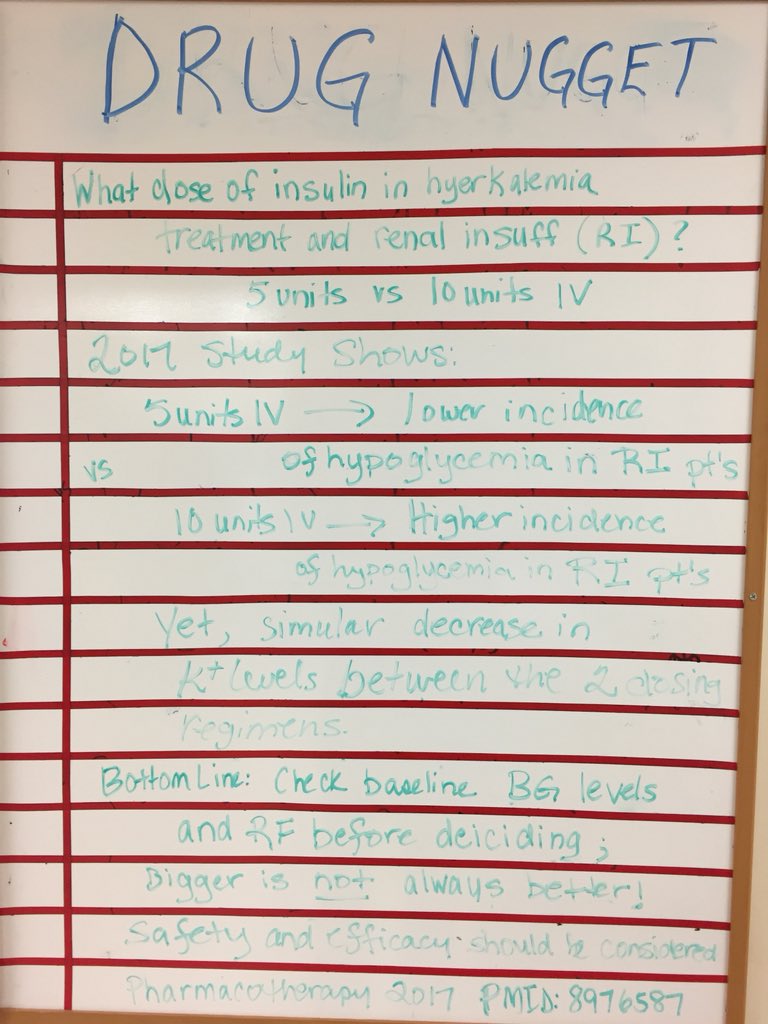 DRUG NUGGET
What dose of insulin in hyerkalemia
treatment and renal insuff (RI)?
5 units vs 10 units IV
2017 Study Shows:
5 units IV → lower incidence
vs of hypoglycemia in RI pt's
10 units IV → Higher incidence
of hypoglycemia in RI pt's
Yet, simular decrease in
K+ levels between the 2 dosing
regimens.
Bottom Line: Check baseline BG levels
and RF before deiciding;
Bigger is not always better!
Safety and efficacy should be considered
Pharmacotherapy 2017 PMID: 8976587